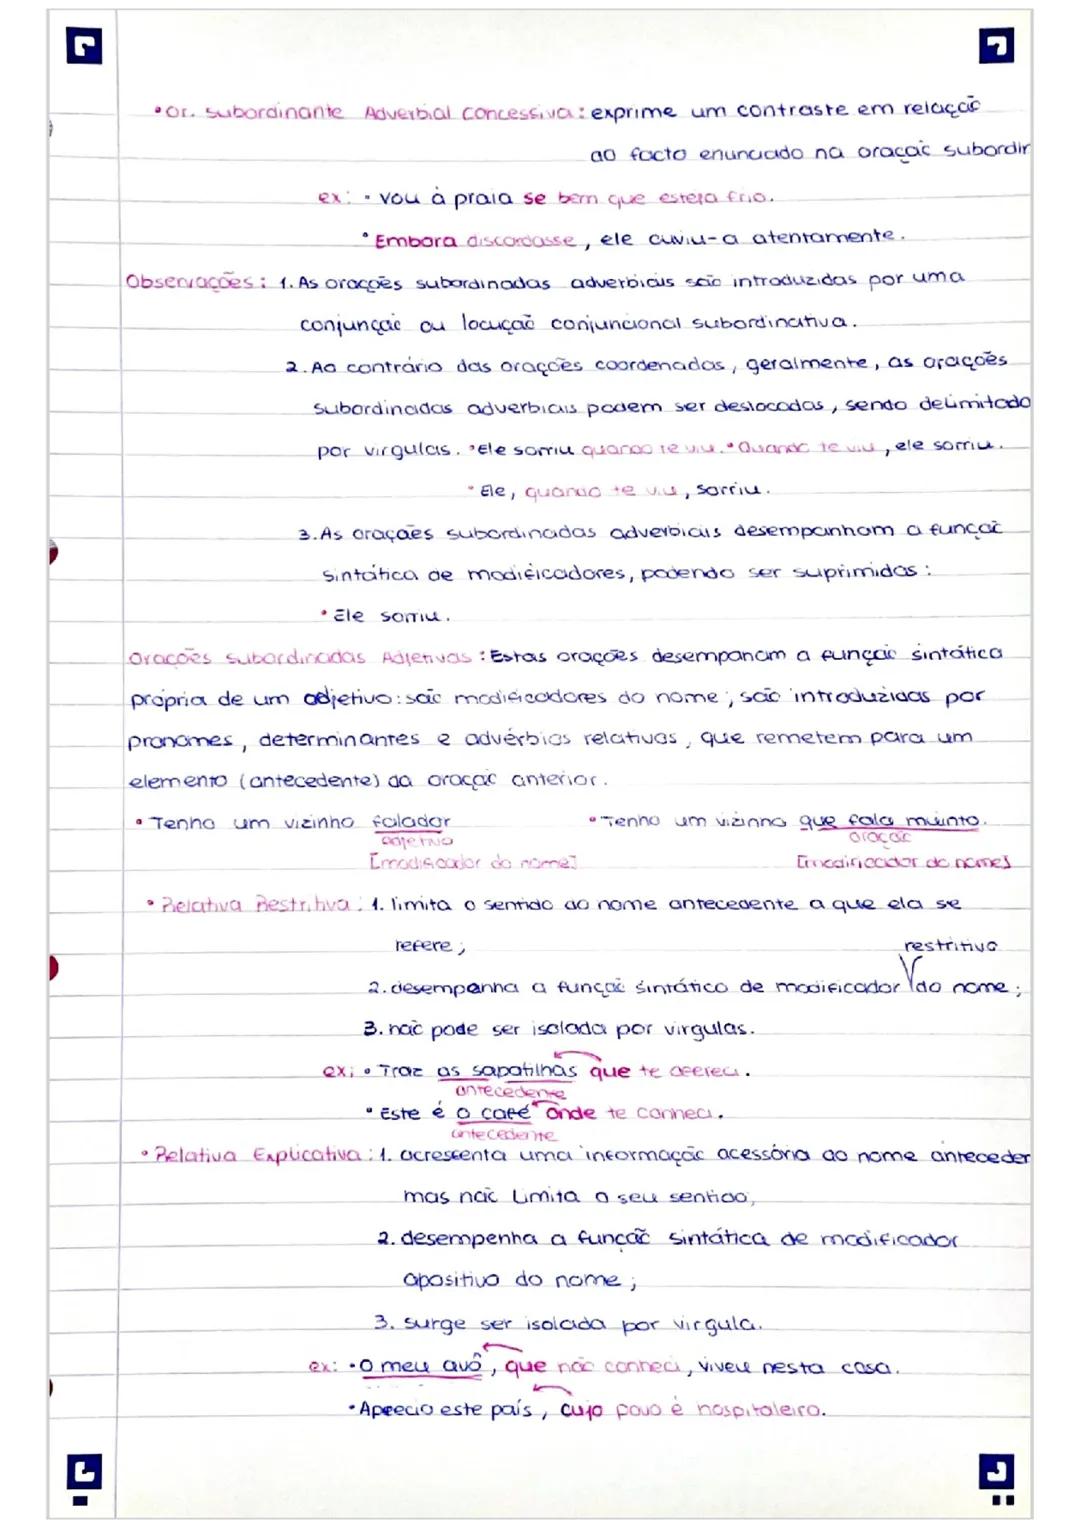 • Or. subordinante Adverbial Concessiva: exprime um contraste em relação
ao facto enunciado na oração subordin
ex: • Vou à praia se bem que esteja frio.
• Embora discordasse, ele ouviu-a atentamente.
Observações: 1. As orações subordinadas adverbiais são introduzidas por uma
conjunção ou locução conjuncional subordinativa.
2. Ao contrário das orações coordenadas, geralmente, as orações
subordinadas adverbiais podem ser deslocadas, sendo delimitada
por virgulas. • Ele sorriu quando te viu. • Quando te viu, ele sorriu.
• Ele, quando te viu, sorriu.
3. As orações subordinadas adverbiais desempanham a função
sintática de modificadores, podendo ser suprimidas:
• Ele sorriu.
Orações subordinadas Adjetivas: Estas orações desempanam a função sintática
própria de um adjetivo: são modificadores do nome; são introduzidas por
pronomes, determinantes e advérbios relativos, que remetem para um
elemento (antecedente) da oração anterior.
• Tenho um vizinho falador • Tenho um vizinho que fala muinto.
adjetivo oração
[modificador do nome] [modificador do nome]
• Relativa Restritiva: 1. limita o sentido do nome antecedente a que ela se
refere; restritivo
2. desempenha a função sintático de modificador do nome;
3. não pode ser isolada por virgulas.
ex: • Traz as sapatilhas que te ofereci.
antecedente
• Este é o café onde te conheci.
antecedente
• Relativa Explicativa: 1. acrescenta uma informação acessória ao nome anteceden
mas não limita o seu sentido;
2. desempenha a função sintática de modificador
apositivo do nome;
3. surge ser isolada por virgula.
ex: • O meu avô, que não conheci, viveu nesta casa.
• Aprecio este país, cujo povo é hospitaleiro.